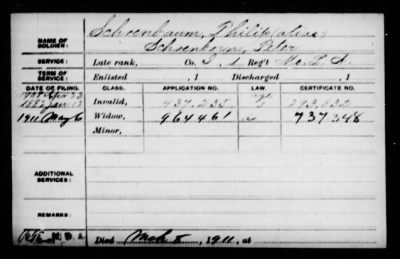 NAME OF SOLDIER: Schoenbaum, Philip (alias)
Schoenborn, Peter
SERVICE: Late rank, Co. I, 1 Reg't Mo. L. A.
TERM OF SERVICE: Enlisted , 1 Discharged , 1
DATE OF FILING. CLASS. APPLICATION NO. LAW. CERTIFICATE NO.
1882 Jan 13 Invalid, 437.235 293.332
1911 May 6 Widow, 964461 737348
Minor,
ADDITIONAL SERVICES:
REMARKS:
Died Mch 5, 1911, at